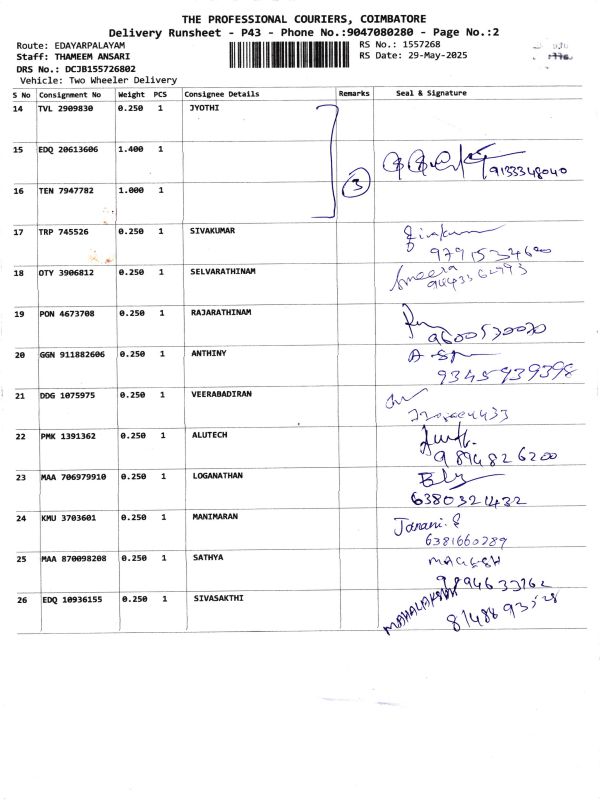 THE PROFESSIONAL COURIERS, COIMBATORE
Delivery Runsheet - P43 - Phone No.:9047080280 - Page No.:2
Route: EDAYARPALAYAM RS No.: 1557268
Staff: THAMEEM ANSARI RS Date: 29-May-2025
DRS No.: DCJB155726802
Vehicle: Two Wheeler Delivery
S No Consignment No Weight PCS Consignee Details Remarks Seal & Signature
14 TVL 2909830 0.250 1 JYOTHI
15 EDQ 20613606 1.400 1 9133348040
16 TEN 7947782 1.000 1 3
17 TRP 745526 0.250 1 SIVAKUMAR Sivakumar
9791534600
18 OTY 3906812 0.250 1 SELVARATHINAM Sameera
19 PON 4673708 0.250 1 RAJARATHINAM
9600570020
20 GGN 911882606 0.250 1 ANTHINY
9345939398
21 DDG 1075975 0.250 1 VEERABADIRAN
22 PMK 1391362 0.250 1 ALUTECH
9894826200
23 MAA 706979910 0.250 1 LOGANATHAN
6380321432
24 KMU 3703601 0.250 1 MANIMARAN Janani.S
6381660289
25 MAA 870098208 0.250 1 SATHYA MAGESH
9894633262
26 EDQ 10936155 0.250 1 SIVASAKTHI MAHALAKSHMI
8148893528